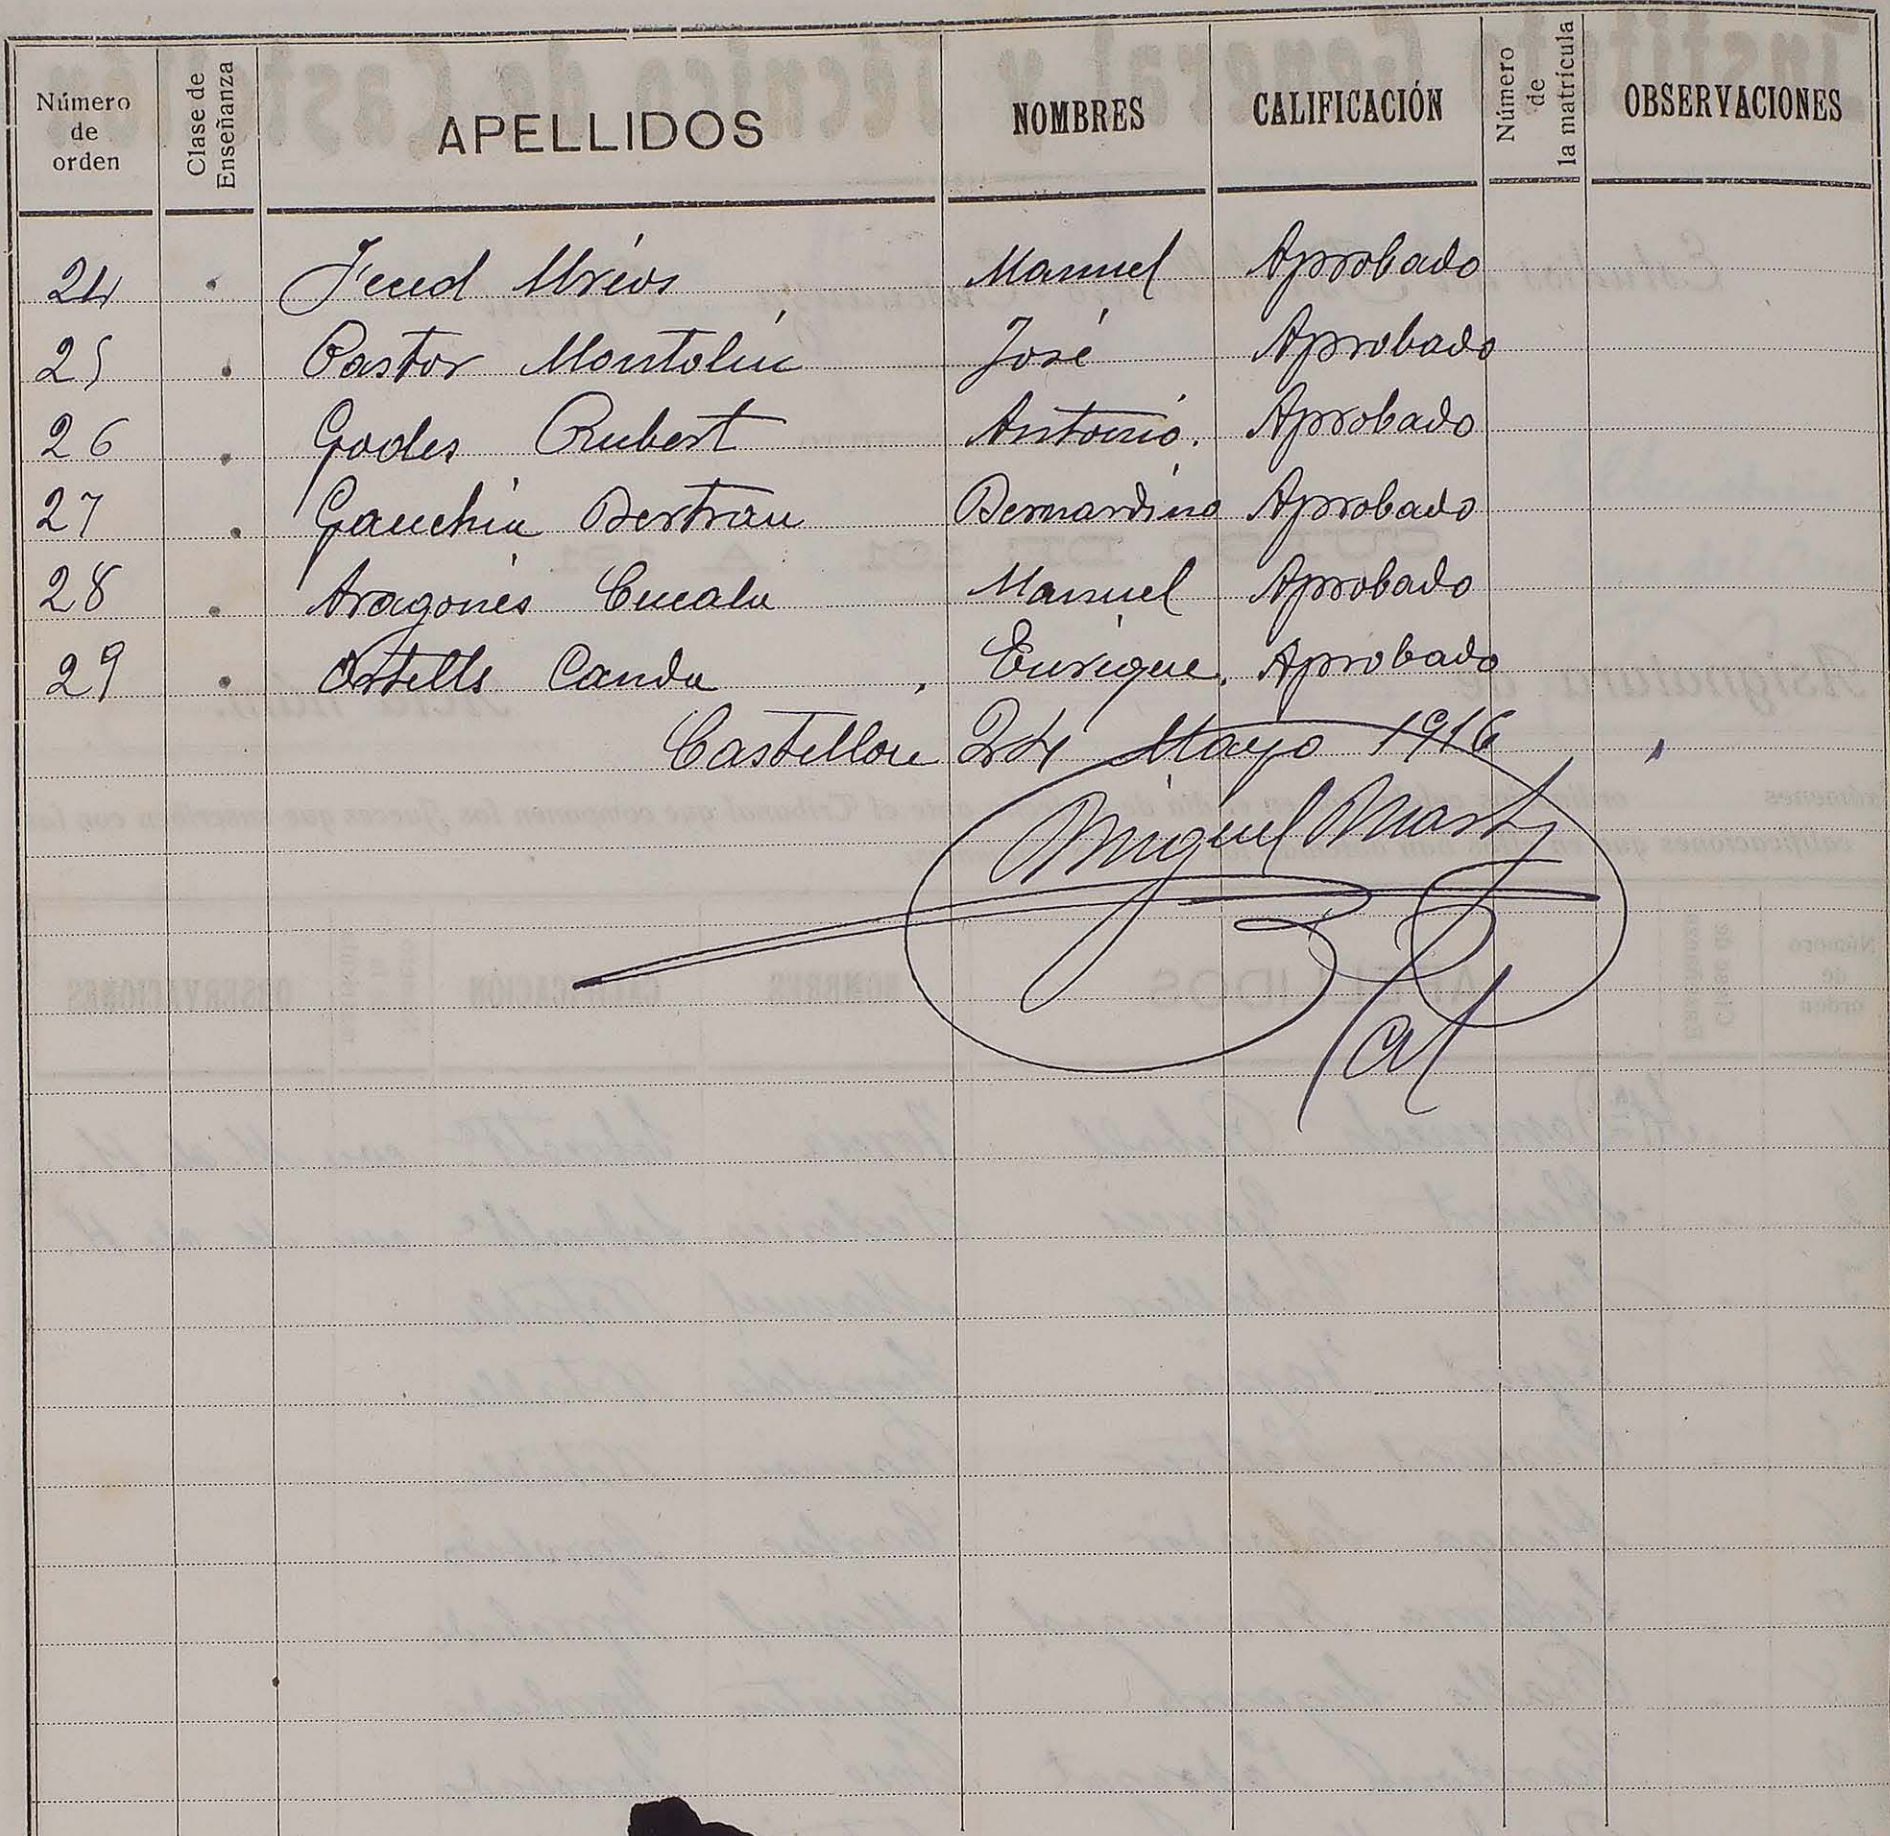 Número de orden Clase de Enseñanza APELLIDOS NOMBRES CALIFICACIÓN Número de la matrícula OBSERVACIONES
24 Manuel Aprobado
25 Pastor Montoliu José Aprobado
26 Godes Rubert Antonio. Aprobado
27 Gauchia Bertran Bernardino Aprobado
28 Aragonés Cucala Manuel Aprobado
29 Ortells Canda Enrique. Aprobado
Castellon 24 Mayo 1916
Miguel Martí